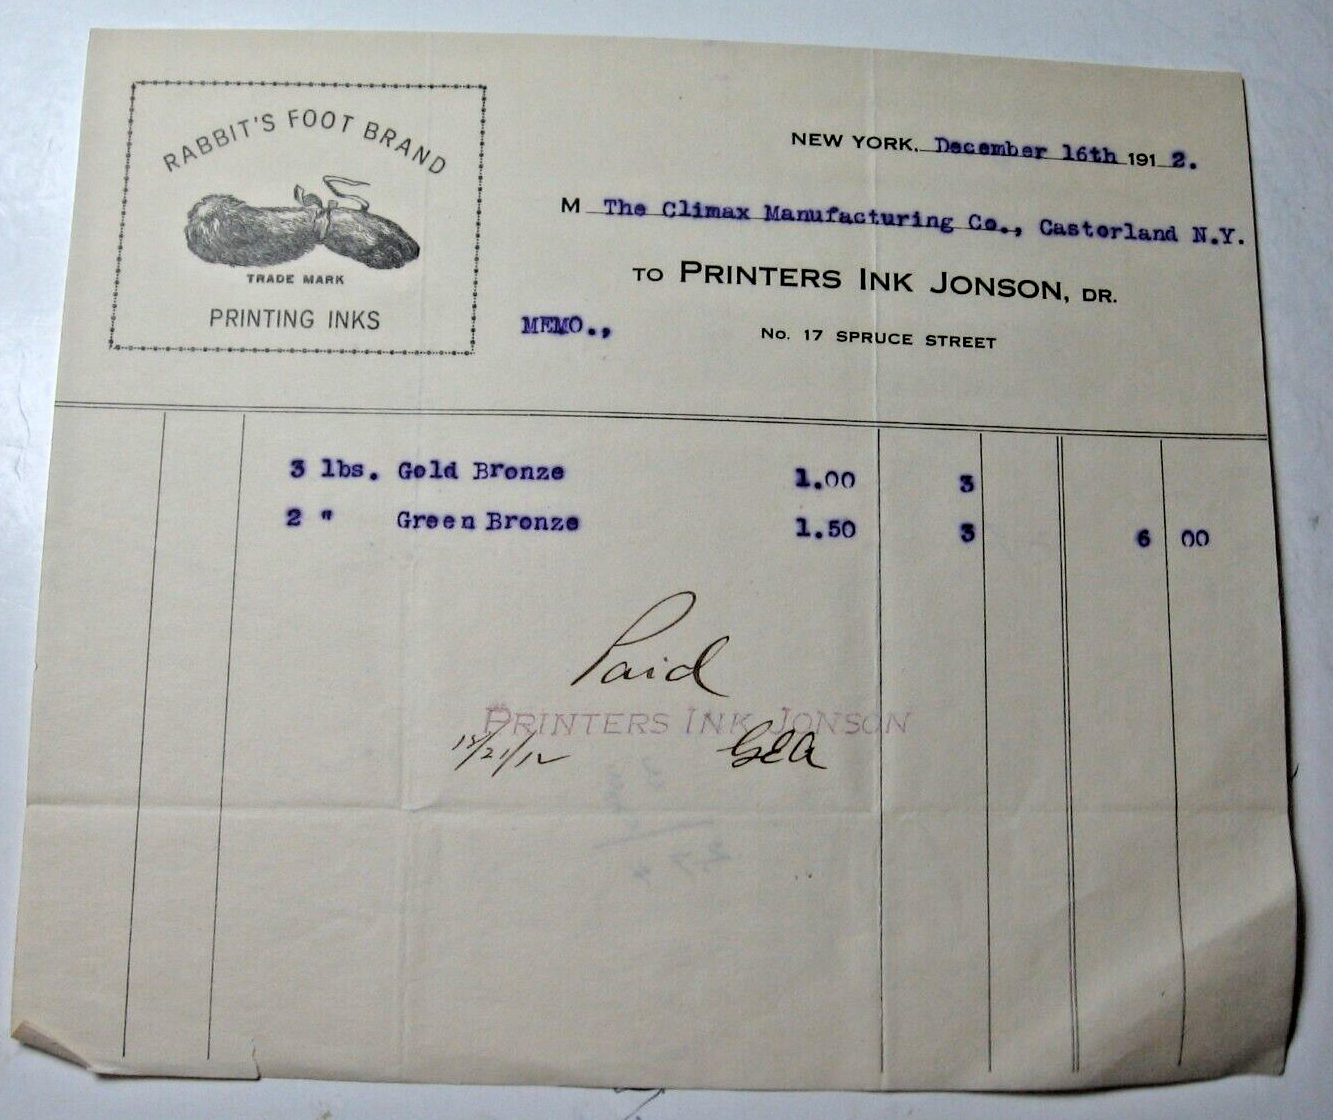 RABBIT'S FOOT BRAND
TRADE MARK
PRINTING INKS
NEW YORK, December 16th 1912.
M The Climax Manufacturing Co., Castorland N.Y.
TO PRINTERS INK JONSON, DR.
MEMO.,
No. 17 SPRUCE STREET
3 lbs. Gold Bronze 1.00 3
2 " Green Bronze 1.50 3 6 00
Paid
PRINTERS INK JONSON
12/21/12 GEA